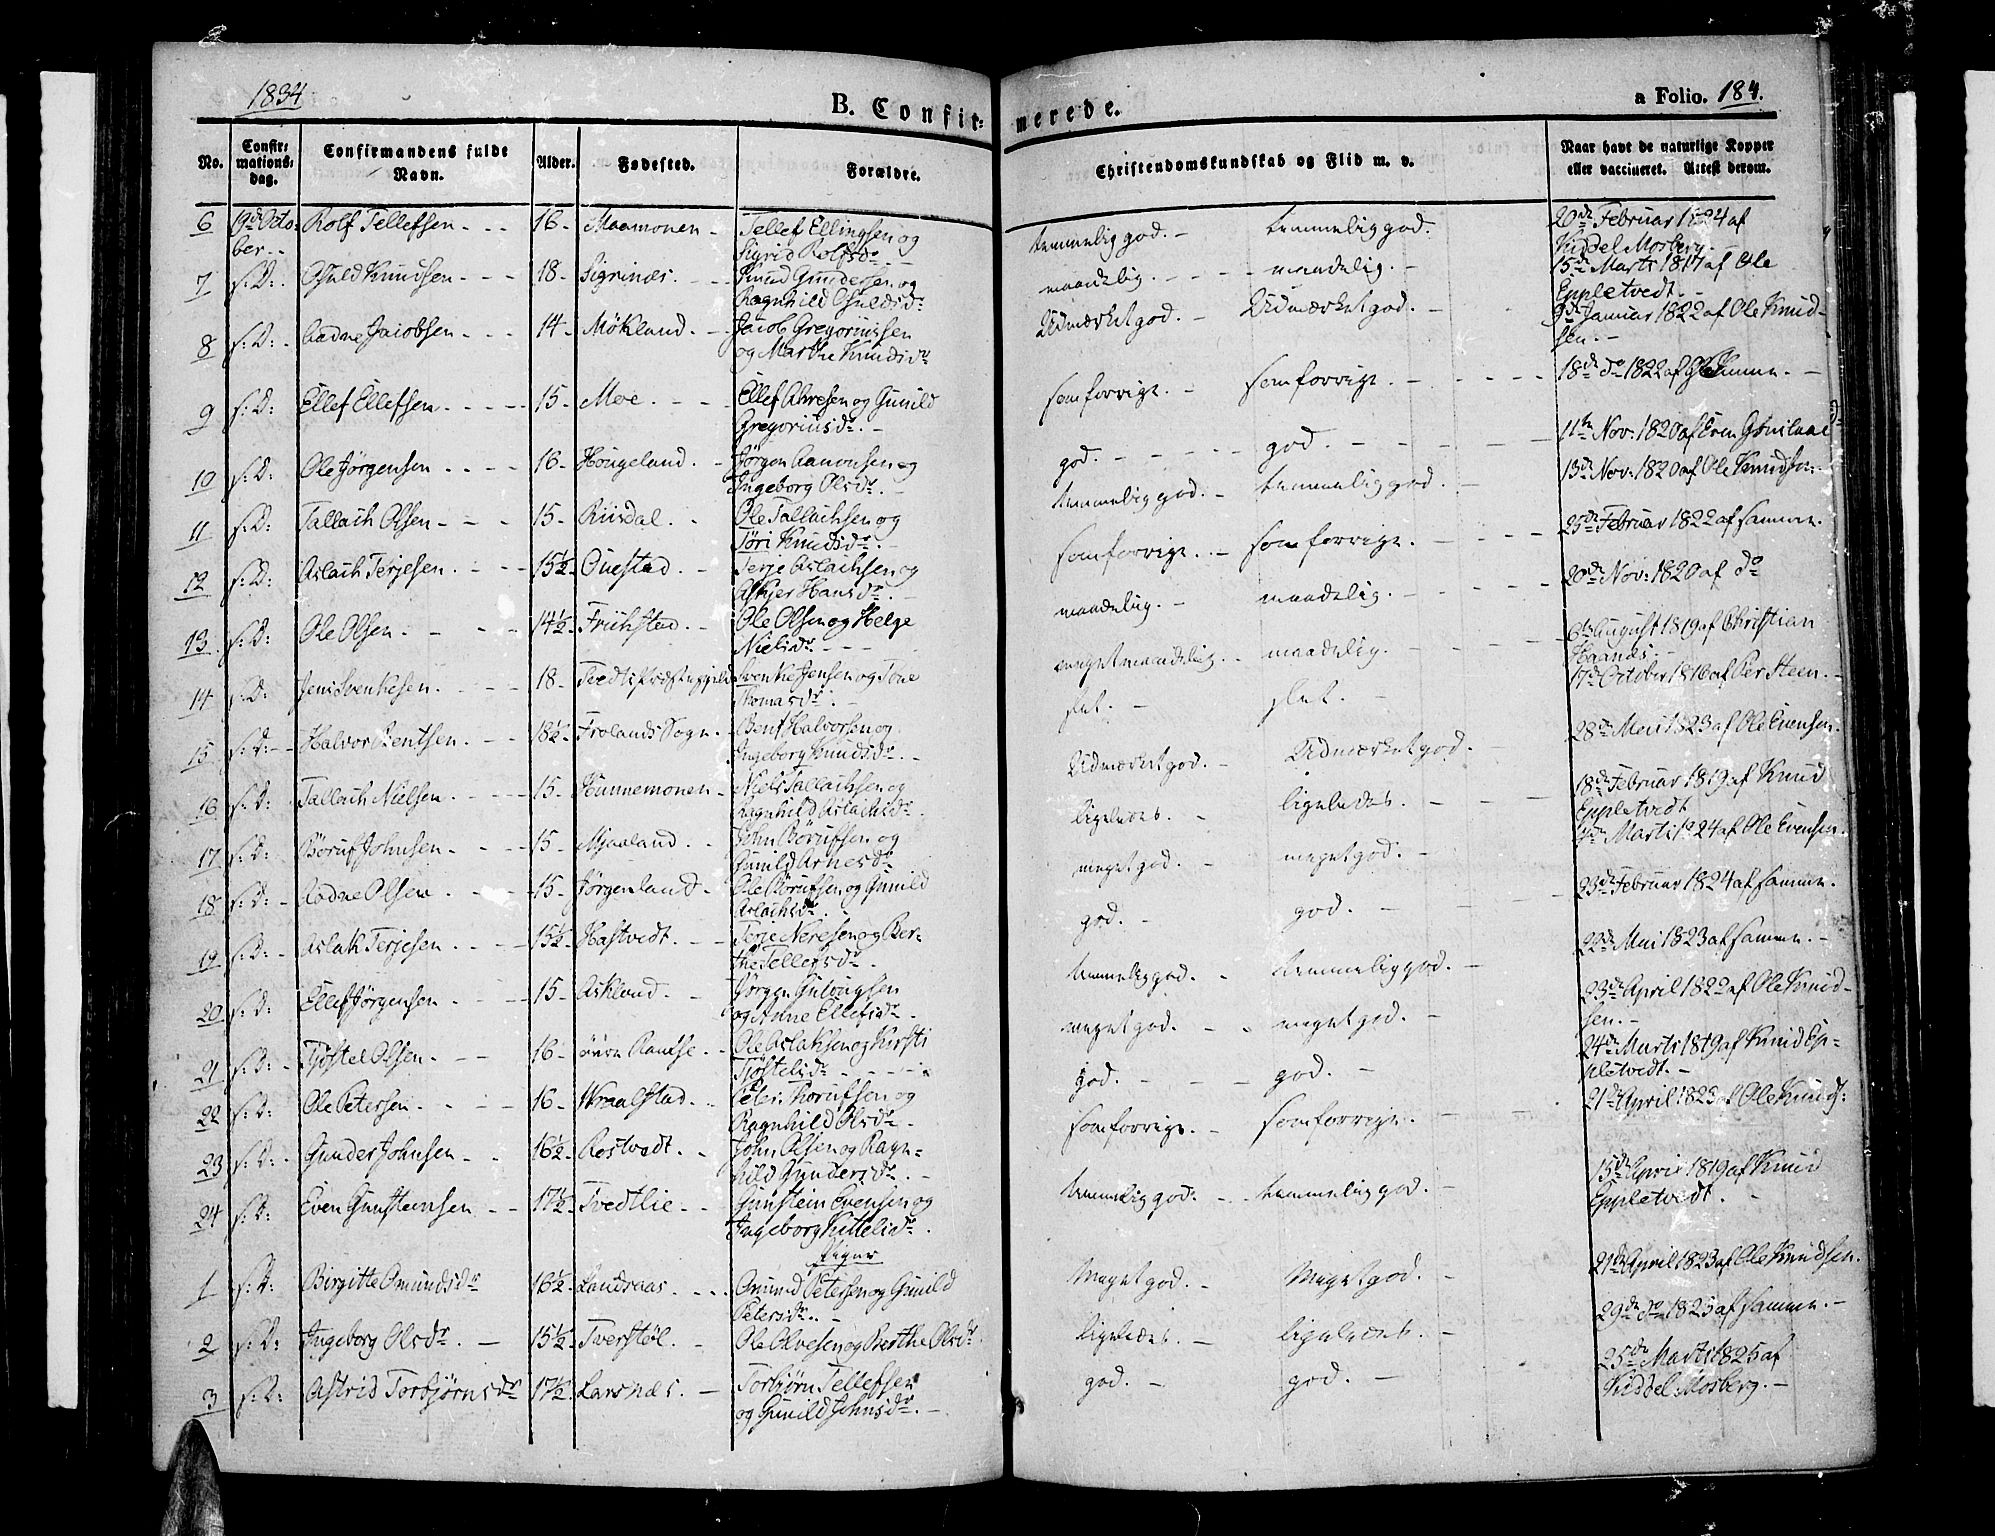 1834
B. Confir=
merede.
a Folio. 184.
No. Confir= mations= dag. Confirmandens fulde Navn. Alder. Fødested. Forældre. Christendomskundskab og Flid m. v. Naar havt de naturlige Kopper eller vaccineret. Attest derom.
6 19de Octo- Rolf Tellefsen 16 Maamonen Tellef Ellingsen og temmelig god. temmelig god. 20de Februar 1824 af
ber Sigrid Rolfsdr. Mosberg.
7 s: D: Osuld Knudsen 18 Sigrinæs. Knud Gundersen og maadelig. maadelig. 15de Marts 1817 af Ole
Ragnhild Osuldsdr. Eppletvedt.
8 s: D: Aadne Jacobsen 14 Mökland. Jacob Gregoriussen Udmærket god. Udmærket god. Januar 1822 af Ole Knud-
og Marthe Knudsdr. sen.
9 s: D: Ellef Ellefsen 15 Moe. Ellef og Gunild som forrige. som forrige. 18de do 1822 af
Gregoriusdr.
10 s: D: Ole Jörgensen 16 Hougeland. Jörgen Aanonsen og god. god. 11te Nov: 1820 af Even
Ingeborg Olsdr.
11 s: D: Tallach Olsen 15 Riisdal. Ole Tallachsen og temmelig god. temmelig god. 13de Nov: 1820 af Ole Knudsen.
Töri Knudsdr.
12 s: D: Aslach Terjesen 15½ Ouestad. Terje Aslachsen og som forrige. som forrige. 25de Februar 1822 af samme.
Askjer Hansdr.
13 s: D: Ole Olsen 14½ Friikstad. Ole Olsen og Helge maadelig. maadelig. 20de Nov: 1820 af do
Nielsdr.
14 s: D: Jens Svenkesen 18 Svenke Jensen og Tone meget maadelig. maadelig. 6te August 1819 af Christian
Thomasdr. Haands.
15 s: D: Halvor Bentsen. 18½ Frolands Sogn. Bent Halvorsen og slet. slet. 17de October 1816 af Per Steen.
Ingeborg Knudsdr.
16 s: D: Tallach Nielsen 15 Hunnemonen Niels Tallachsen og Udmærket god. Udmærket god. 28de Mai 1823 af Ole Evensen.
Ragnhild Aslachsdr.
17 s: D: Böruf Johnsen 15 Mjaaland. John Börufsen og ligeledes. ligeledes. 18de Februar 1819 af Knud
Gunild Arnesdr. Eppletvedt
18 s: D: Aadne Olsen 15 Jörgenland Ole Börufsen og Gunild meget god. meget god. Marts 1824 af Ole Evensen.
Aslachsdr.
19 s: D: Aslak Terjesen 15½ Hastvedt. Terje Neresen og Ber- god. god. 23de Februar 1824 af samme.
the Tellefsdr.
20 s: D: Ellef Jörgensen 15 Askland. Jörgen temmelig god. temmelig god. 22de Mai 1823 af samme.
og Anne Ellefsdr.
21 s: D: Tjöstel Olsen 16 övre Ramse. Ole Aslaksen og Kirsti meget god. meget god. 23de April 1822 af Ole Knud-
Tjöstelsdr. sen.
22 s: D: Ole Petersen 16 Wraalstad. Peter Thorufsen og god. god. 24de Marts 1819 af Knud Ep-
Ragnhild Olsdr. pletvedt.
23 s: D: Gunder Johnsen 16½ Rostvedt. John Olsen og Ragn- som forrige. som forrige. 21de April 1823 af Ole
hild Gundersdr.
24 s: D: Even Gunsteinsen 17½ Tvedtlie Gunstein Evensen og temmelig god. temmelig god. 15de April 1819 af Knud
Ingeborg Kittelsdr. Eppletvedt.
Piger
1 s: D: Birgitte Omundsdr 16½ Landsaas. Omund Petersen og Gunild Meget god. Meget god. 21de April 1823 af Ole Knudsen.
Petersdr.
2 s: D: Ingeborg Olsdr. 15½ Tverstöl. Ole Olvesen og Berthe Olsdr. ligeledes. ligeledes. 29de do 1823 af samme.
3 s: D: Astrid Torbjörnsdr 17½ Larsnæs. Torbjörn Tellefsen god. god. 25de Marts 1825 af
og Gunild Johnsdr. Mosberg.